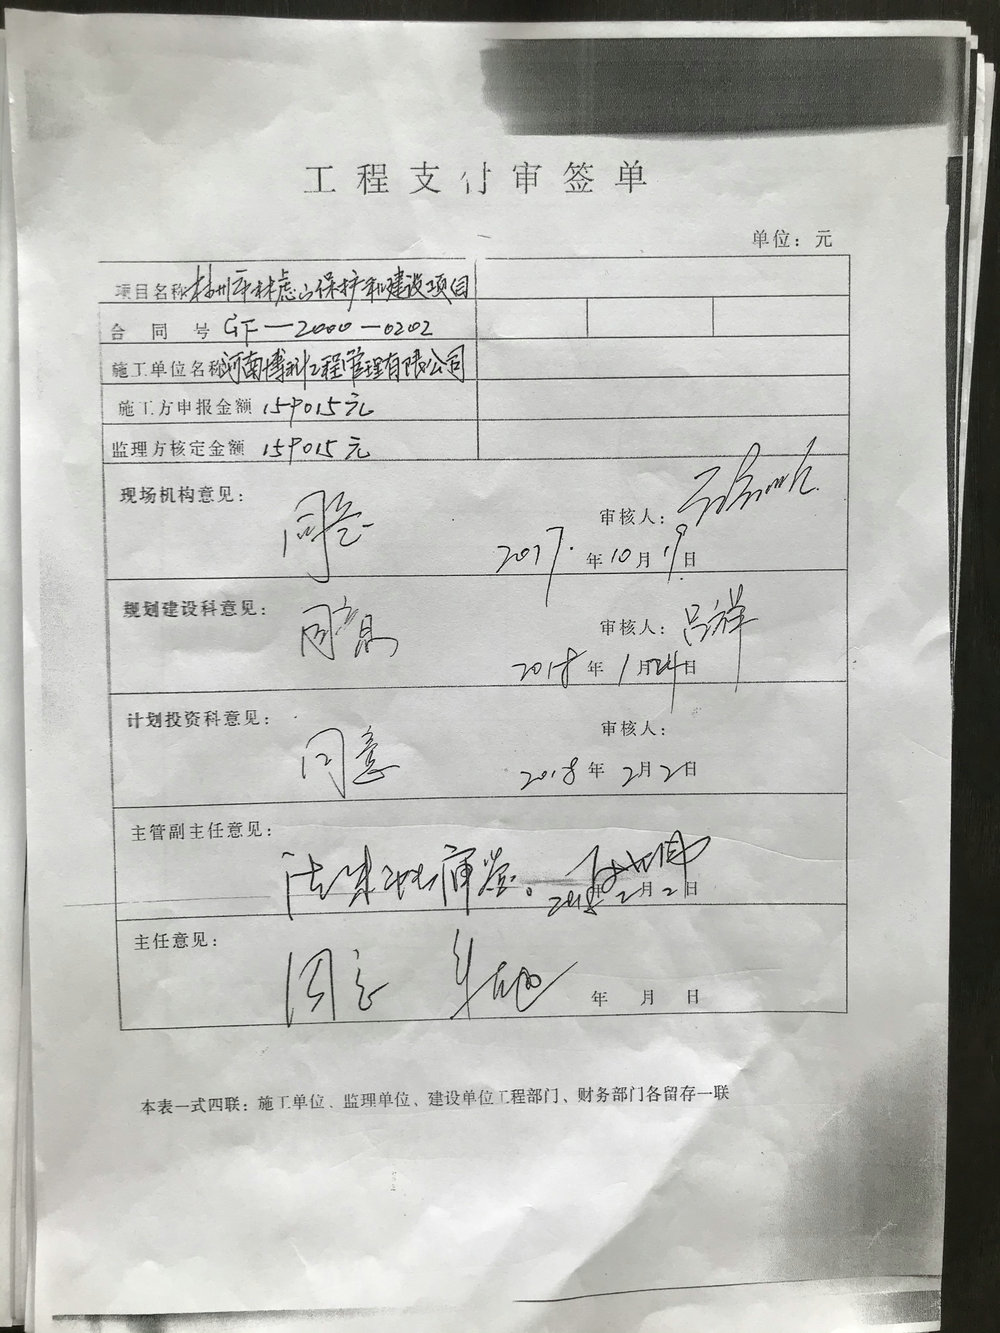 工程支付审签单
单位：元
项目名称 林州市林虑山保护和建设项目
合同号 GF—2000—0202
施工单位名称 河南博科工程管理有限公司
施工方申报金额 159015元
监理方核定金额 159015元
现场机构意见：
同意
审核人：
2017年10月19日
规划建设科意见：
同意
审核人：吕祥
2018年1月24日
计划投资科意见：
同意
审核人：
2018年2月2日
主管副主任意见：
审签。
2018年2月2日
主任意见：
同意
年 月 日
本表一式四联：施工单位、监理单位、建设单位工程部门、财务部门各留存一联